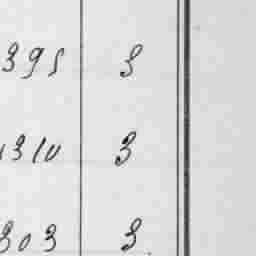 395 3
1310 3
303 3